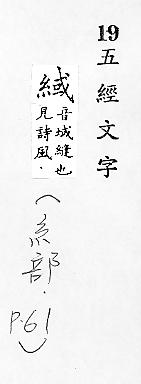 19 五經文字
緎 音域縫也
見詩風.
(糸部. P.61)